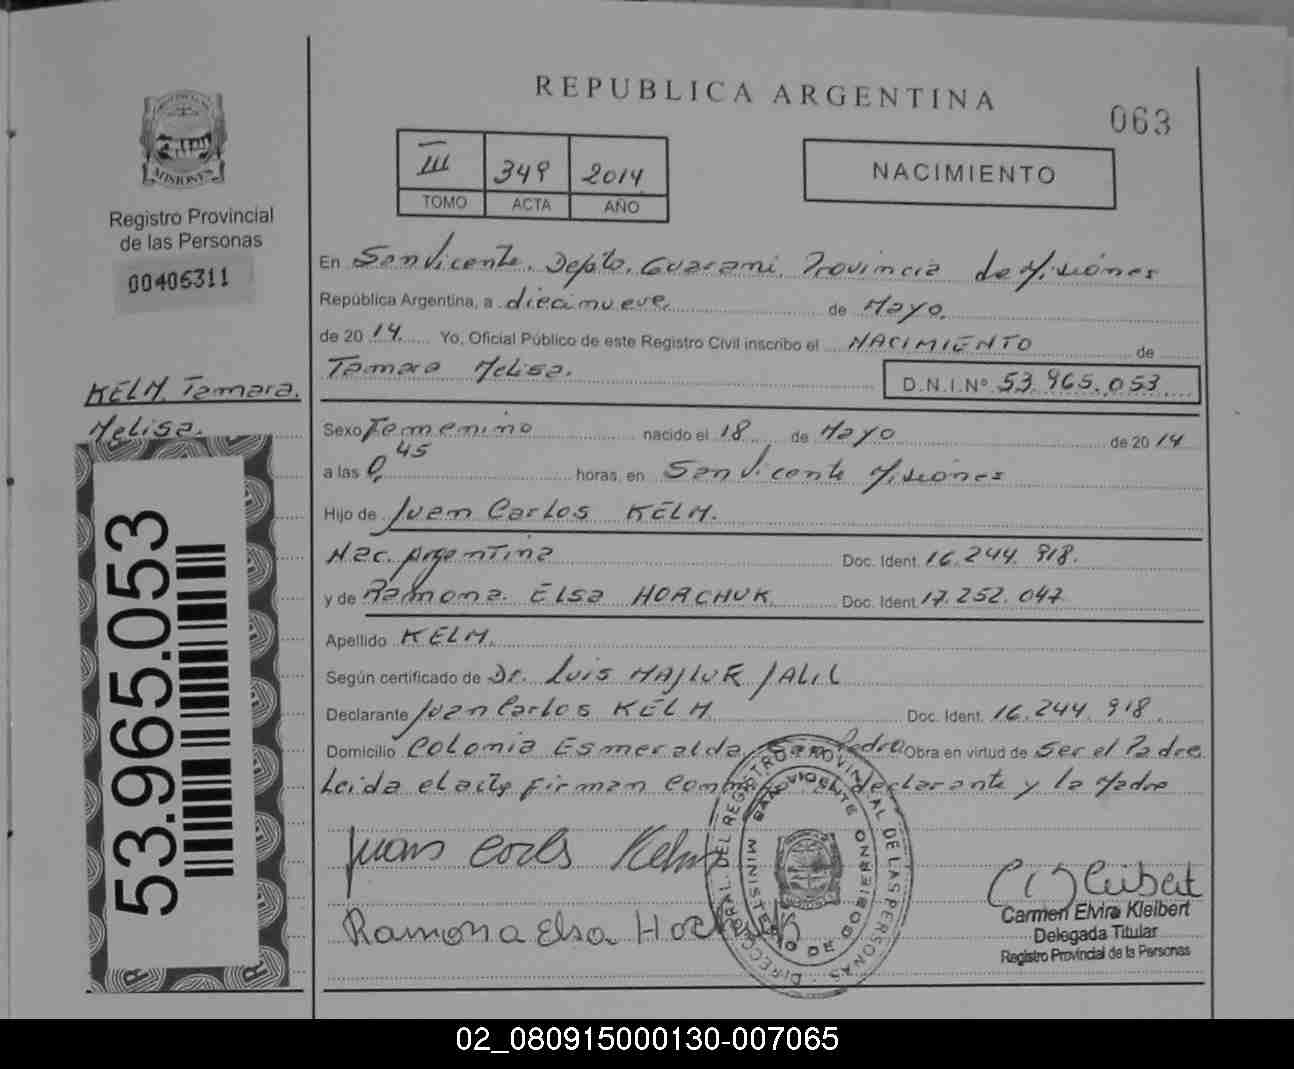 REPUBLICA ARGENTINA
063
MISIONES
Registro Provincial
de las Personas
00406311
III 349 2014
TOMO ACTA AÑO
NACIMIENTO
En San Vicente, Depto. Guarani, Provincia de Misiones
República Argentina, a diecinueve de Mayo.
de 2014. Yo, Oficial Público de este Registro Civil inscribo el NACIMIENTO de
Tamara Melisa. D.N.I.Nº 53.965.053
KELM Tamara.
Melisa.
Sexo Femenino nacido el 18 de Mayo de 2014
a las 0,45 horas, en San Vicente Misiones
Hijo de Juan Carlos KELM.
Nac. Argentina Doc. Ident. 16.244.918.
y de Ramona Elsa HORCHUK Doc. Ident. 17.252.047
Apellido KELM.
Según certificado de Dr. Luis MAJLUK JALIL
Declarante Juan Carlos KELM Doc. Ident. 16.244.918.
Domicilio Colonia Esmeralda, San Pedro Obra en virtud de Ser el Padre
Leida el acta firman declarante y la Madre
53.965.053
Juan Kelm
Ramona Elsa
DIRECCION GRAL. DEL REGISTRO PROVINCIAL DE LAS PERSONAS
MINISTERIO DE GOBIERNO
SAN VICENTE
Kleibert
Carmen Elvira Kleibert
Delegada Titular
Registro Provincial de la Personas
02_080915000130-007065